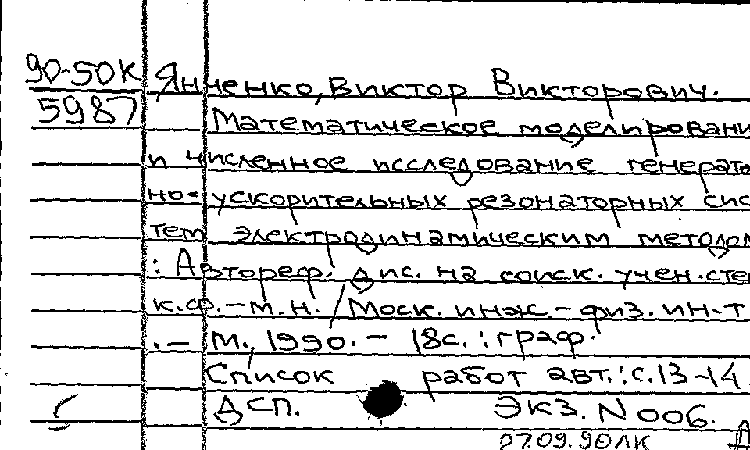 90-50К Янченко, Виктор Викторович.
5987 Математическое моделировани
и численное исследование генерато
но-ускорительных резонаторных сис
тем электродинамическим методом
: Автореф. дис. на соиск. учен. сте
к.ф.-м.н. / Моск. инж.-физ. ин-т
.- М., 1990. - 18с. : граф.
Список работ авт.: с.13-14.
ДСП. Экз. N 006.
27.09.90ЛК